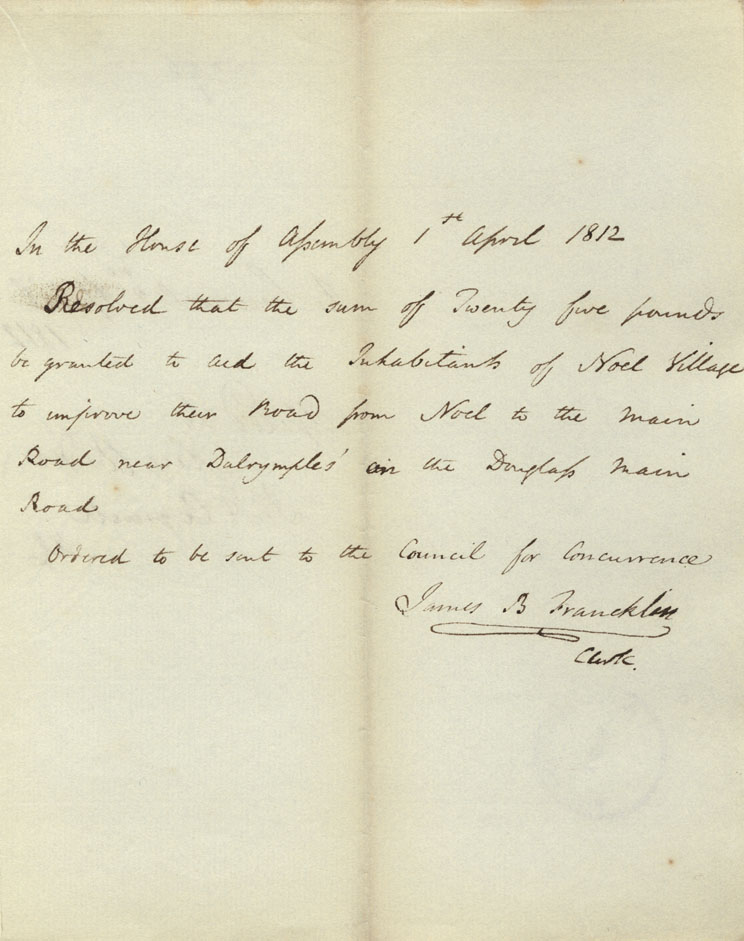 In the House of Assembly 1st April 1812
Resolved that the sum of Twenty five pounds
be granted to aid the Inhabitants of Noel Village
to improve their Road from Noel to the Main
Road near Dalrymples' in the Douglass Main
Road
Ordered to be sent to the Council for Concurrence
James B Francklin
Clerk.